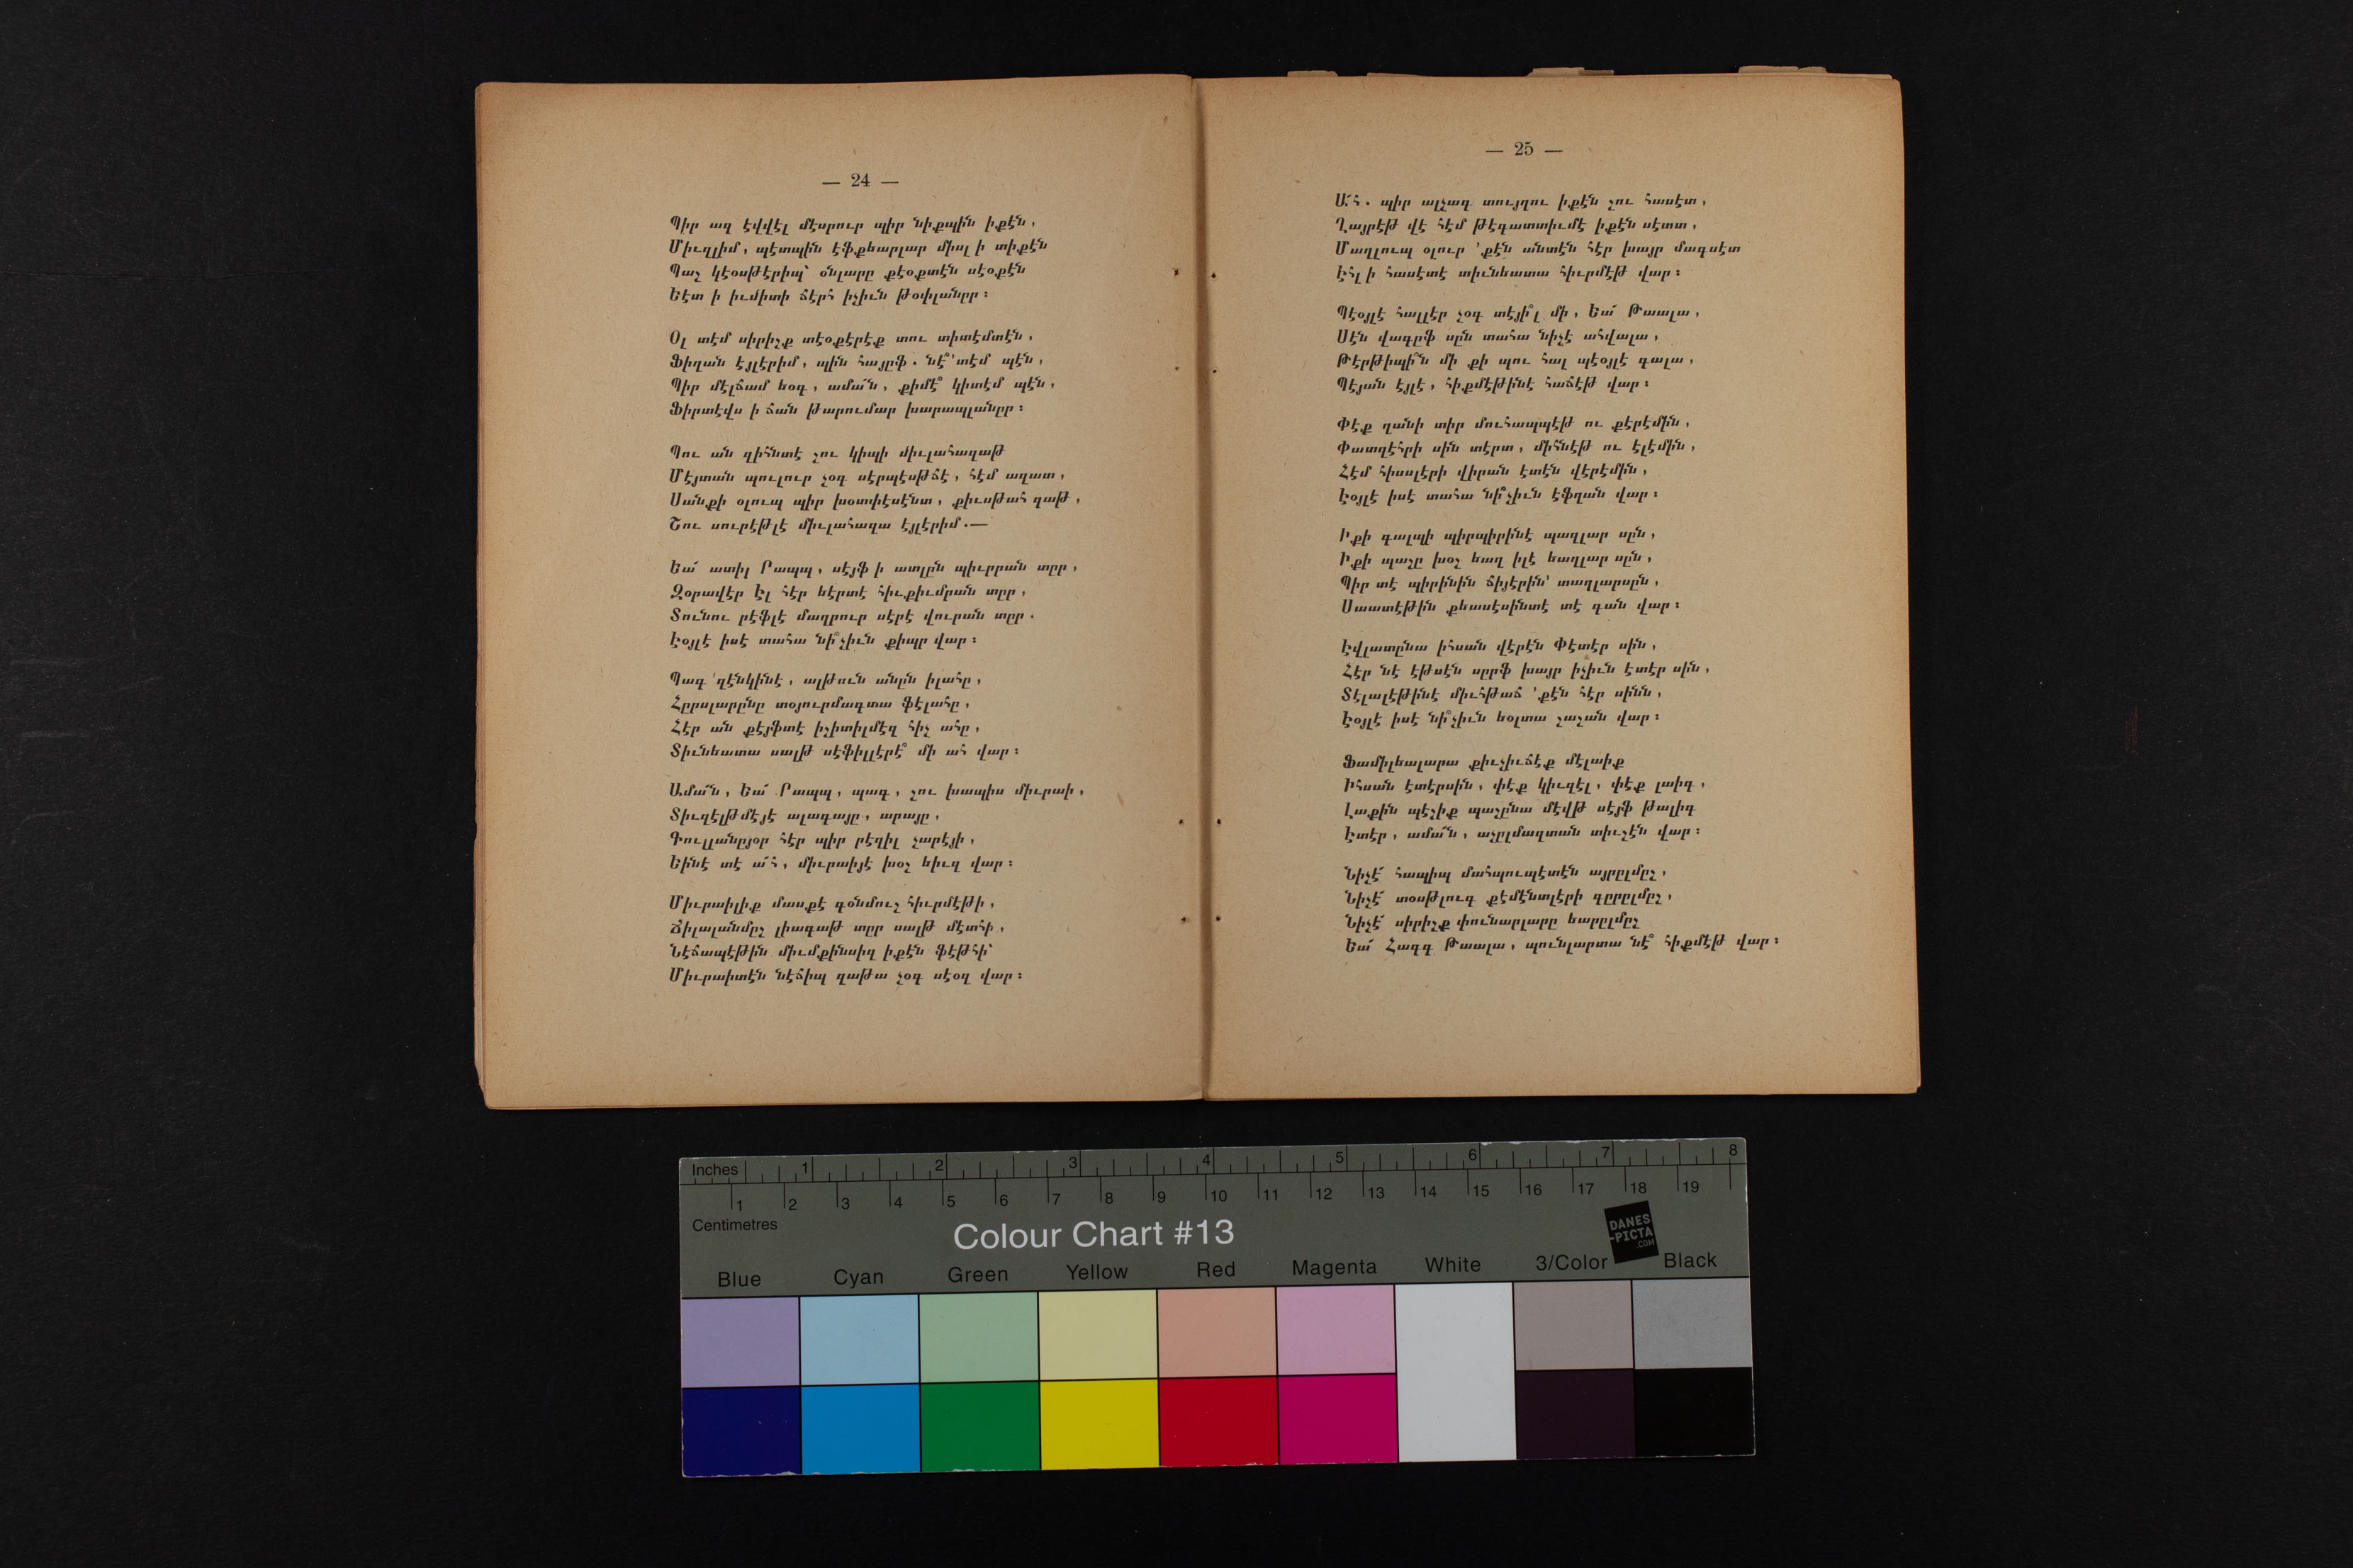 — 24 —
Պիր ազ էվվէլ մէսրուր պիր նիքպին իքէն,
Միւզլիմ, պէտպին էֆքեարլար միսլ ի տիքէն
Պաշ կէօսթէրիպ՝ օնլարը քէօքտէն սէօքէն
Եէտ ի իւմիտի ճէրհ իչիւն թօփլանըր։
Օլ տէմ սիրիշք տէօքէրէք տու տիտէմտէն,
Ֆիղան էյլէրիմ, պին հայըֆ. նէ՞՚տէմ պէն,
Պիր մէլճամ եօգ, ամա՜ն, քիմէ՞ կիտէմ պէն,
Ֆիրտէվս ի ճան թարումար խարապլանըր։
Պու ան զիհնտէ շու կիպի միւլահազաթ
Մէյտան պուլուր չօգ սէրպէսթճէ, հէմ ազատ,
Սանքի օլուպ պիր խօտփէսէնտ, քիւսթահ զաթ,
Շու սուրէթլէ միւլահազա էյլէրիմ.—
Եա՜ ատիլ Րապպ, սէյֆ ի ատլըն պիւրրան տըր,
Զօրավէր Էլ հէր եէրտէ հիւքիւմրան տըր,
Տունու րէֆլէ մաղրուր սէրէ վուրան տըր.
Էօյլէ իսէ տահա նի՞չիւն քիպր վար։
Պագ ՚զէնկինէ, ալթուն անըն իլահը,
Հըրսլարընը տօյուրմագտա ֆէլահը,
Հէր ան քէյֆտէ իշիտիլմէզ հիչ ահը,
Տիւնեատա սալթ սէֆիլլէրէ՞ մի ահ վար։
Ամա՜ն, Եա՜ Րապպ, պագ, շու խապիս միւրաի,
Տիւզէլթմէյէ ալագայը, արայը,
Գուլլանըյօր հէր պիր րէզիլ չարէյի,
Եինէ տէ ա՜հ, միւրաիյէ խօշ եիւզ վար։
Միւրաիլիք մասքէ գօնմուշ հիւրմէթի,
Ճիլալանմըշ լիագաթ տըր սալթ մէտհի,
Նէճապէթին միւմքինսիզ իքէն ֆէթհի՝
Միւրաիտէն նէճիպ զաթա չօգ սէօզ վար։
— 25 —
Ա՜հ. պիր ալչագ տույղու իքէն շու հասէտ,
Ղայրէթ վէ հէմ թէգատտիւմէ իքէն սէտտ,
Մաղլուպ օլուր ՚քէն անտէն հէր խայր մագսէտ
Էհլ ի հասէտէ տիւնեատա հիւրմէթ վար։
Պէօյլէ հալլէր չօգ տէյի՞լ մի, Եա՜ Թաալա,
Սէն վագըֆ սըն տահա նիչէ ահվալա,
Թէրթիպի՞ն մի քի պու հալ պէօյլէ գալա,
Պէյան էյլէ, հիքմէթինէ հաճէթ վար։
Փէք ղանի տիր մուհապպէթ ու քէրէմին,
Փատզէհրի սին տէրտ, միհնէթ ու էլէմին,
Հէմ հիսսլէրի վիրան էտէն վէրէմին,
Էօյլէ իսէ տահա նի՞չիւն էֆղան վար։
Իքի գալպի պիրպիրինէ պաղլար սըն,
Իքի պաշը խօշ եաղ իլէ եաղլար սըն,
Պիր տէ պիրինին ճիյէրին՚ տաղլարսըն,
Սաատէթին քեասէսինտէ տէ գան վար։
Էվլատընա իհսան վէրէն Փէտէր սին,
Հէր նէ էթսէն սըրֆ խայր իչիւն էտէր սին,
Տէլալէթինէ միւհթաճ ՚քէն հէր սինն,
Էօյլէ իսէ նի՞չիւն եօլտա շաշան վար։
Ֆամիլեալարա քիւչիւճէք մէլաիք
Իհսան էտէրսին, փէք կիւզէլ, փէք լաիգ,
Լաքին պէշիք պաշընա մէվթ սէյֆ թալիգ
Էտէր, ամա՜ն, աչըլմազտան տիւշէն վար։
Նիչէ՜ հապիպ մահպուպէտէն այրըլմըշ,
Նիչէ՜ տօսթլուգ քէմէնտլէրի գըրըլմըշ,
Նիչէ՜ սիրիշք փունարլարը եարըլմըշ
Եա՜ Հագգ Թաալա, պունլարտա նէ՞ հիքմէթ վար։
Inches 1 2 3 4 5 6 7 8
1 2 3 4 5 6 7 8 9 10 11 12 13 14 15 16 17 18 19
Centimetres
Colour Chart #13
DANES
-PICTA
.COM
Blue Cyan Green Yellow Red Magenta White 3/Color Black